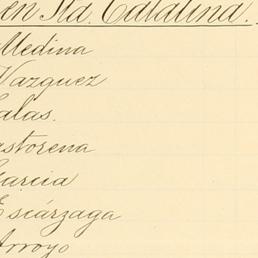 en Sta. Catalina.
Medina
Vazquez
alas.
astorena
Garcia
Esiárzaga
Arroyo